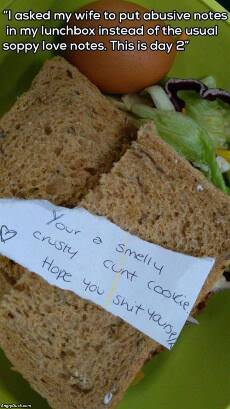 "I asked my wife to put abusive notes
in my lunchbox instead of the usual
soppy love notes. This is day 2"
Your a smelly
crusty cunt cookie
Hope you shit yourself
AngryDuck.com